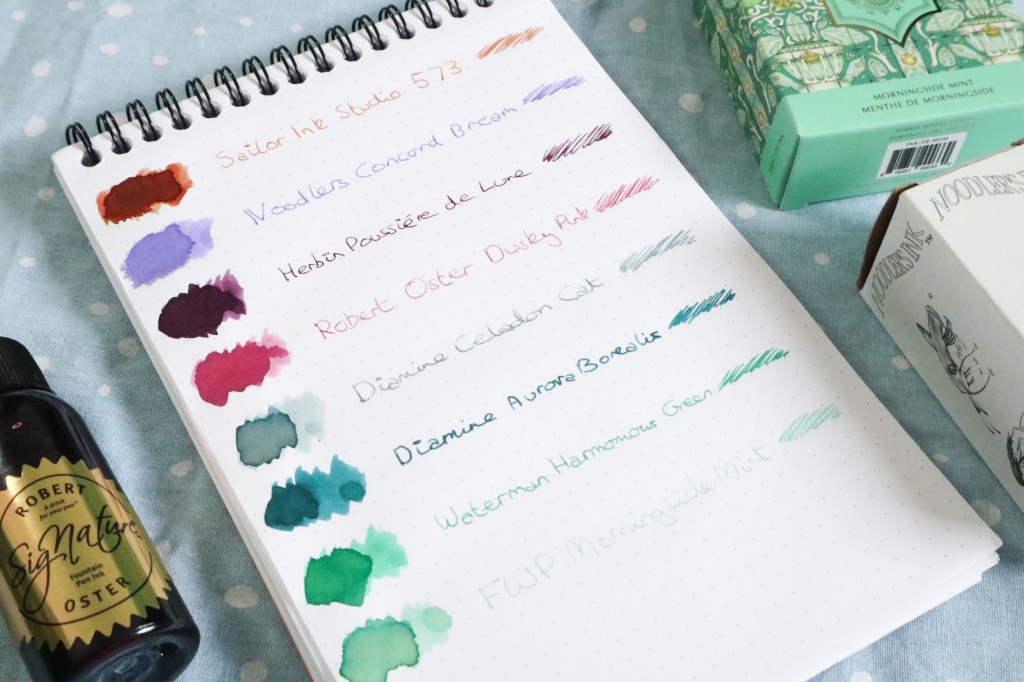 Sailor Ink Studio 573
Noodlers Concord Bream
Herbin Poussiére de Lune
Robert Oster Dusky Pink
Diamine Celadon Cat
Diamine Aurora Borealis
Waterman Harmonious Green
FWP Morningside Mint
MORNINGSIDE MINT
MENTHE DE MORNINGSIDE
NOODLER'S INK™
NOODLER'S
ROBERT
A drink
for your pen™
SigNature
Fountain
Pen Ink
OSTER